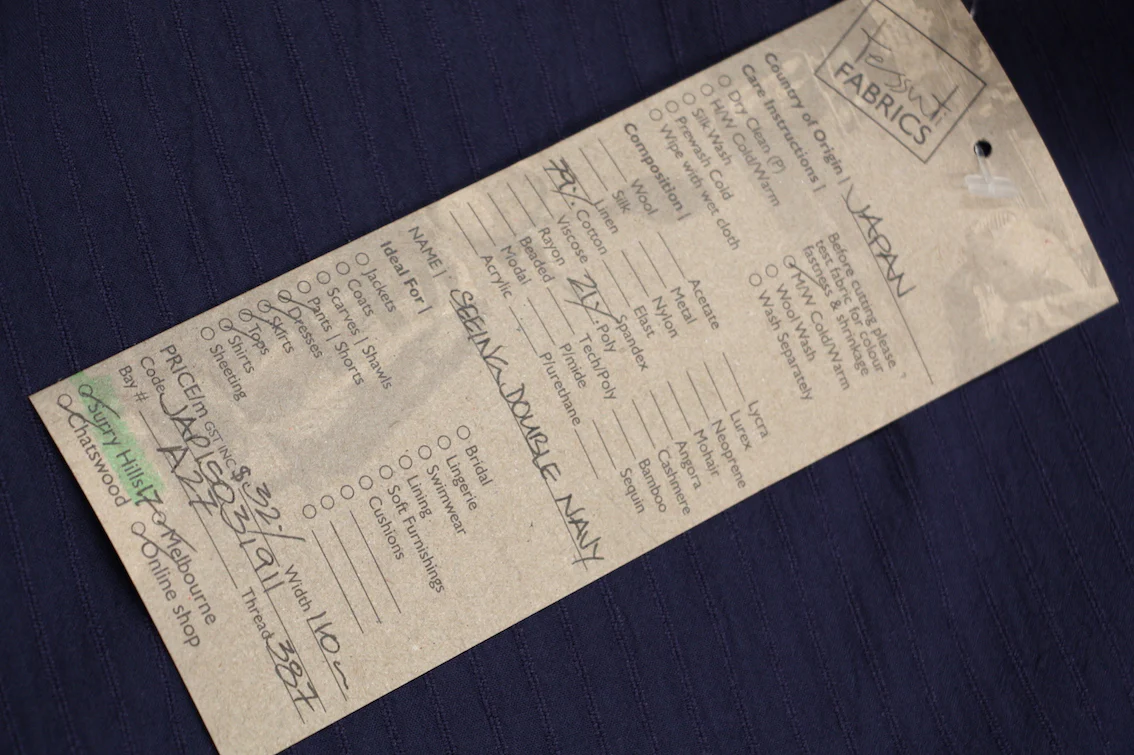 Tessuti
FABRICS
Country of Origin | JAPAN
Care Instructions |
Before cutting please
test fabric for colour
fastness & shrinkage
Dry Clean (P)
H/W Cold/Warm
Silk Wash
Prewash Cold
Wipe with wet cloth
M/W Cold/Warm
Wool Wash
Wash Separately
Composition |
Wool
Silk
Linen
79% Cotton
Viscose
Rayon
Beaded
Modal
Acrylic
Acetate
Metal
Nylon
Elast
Spandex
21% Poly
Tech/Poly
P/mide
P/urethane
Lycra
Lurex
Neoprene
Mohair
Angora
Cashmere
Bamboo
Sequin
NAME | SEEING DOUBLE NAVY
Ideal For |
Jackets
Coats
Scarves | Shawls
Pants | Shorts
Dresses
Skirts
Tops
Shirts
Sheeting
Bridal
Lingerie
Swimwear
Lining
Soft Furnishings
Cushions
PRICE/m GST INC $ 32./ Width 110
Code Thread 387
Bay # A27
Surry Hills Melbourne
Chatswood Online shop